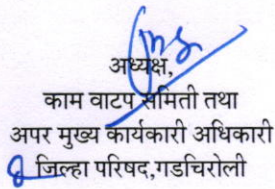 अध्यक्ष,
काम वाटप समिती तथा
अपर मुख्य कार्यकारी अधिकारी
जिल्हा परिषद,गडचिरोली